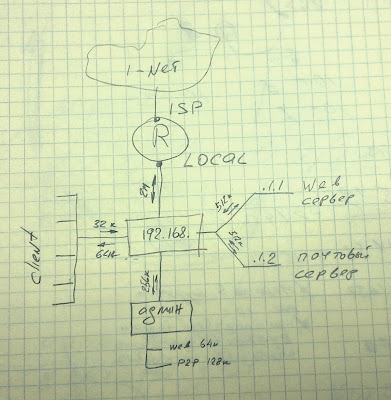 I-Net
ISP
R
LOCAL
2M
.1.1 Web
сервер
512к
32 к
64к
192.168.
client
.1.2 почтовый
сервер
256к
админ
web 64к
P2P 128к